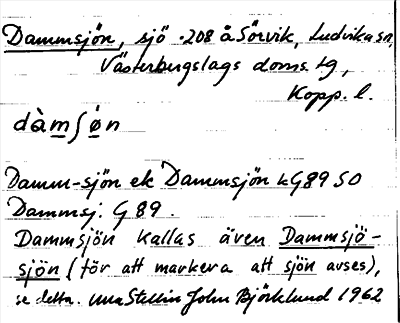 Dammsjön, sjö ·208 å Sörvik, Ludvika sn,
Västerbergslags doms. tg,
Kopp. l.
dàmʃøn
Damm-sjön ek Dammsjön kG89 SO
Dammsj. G 89.
Dammsjön kallas även Dammsjö-
sjön (för att markera att sjön avses),
se detta. Una Stellin John Björklund 1962